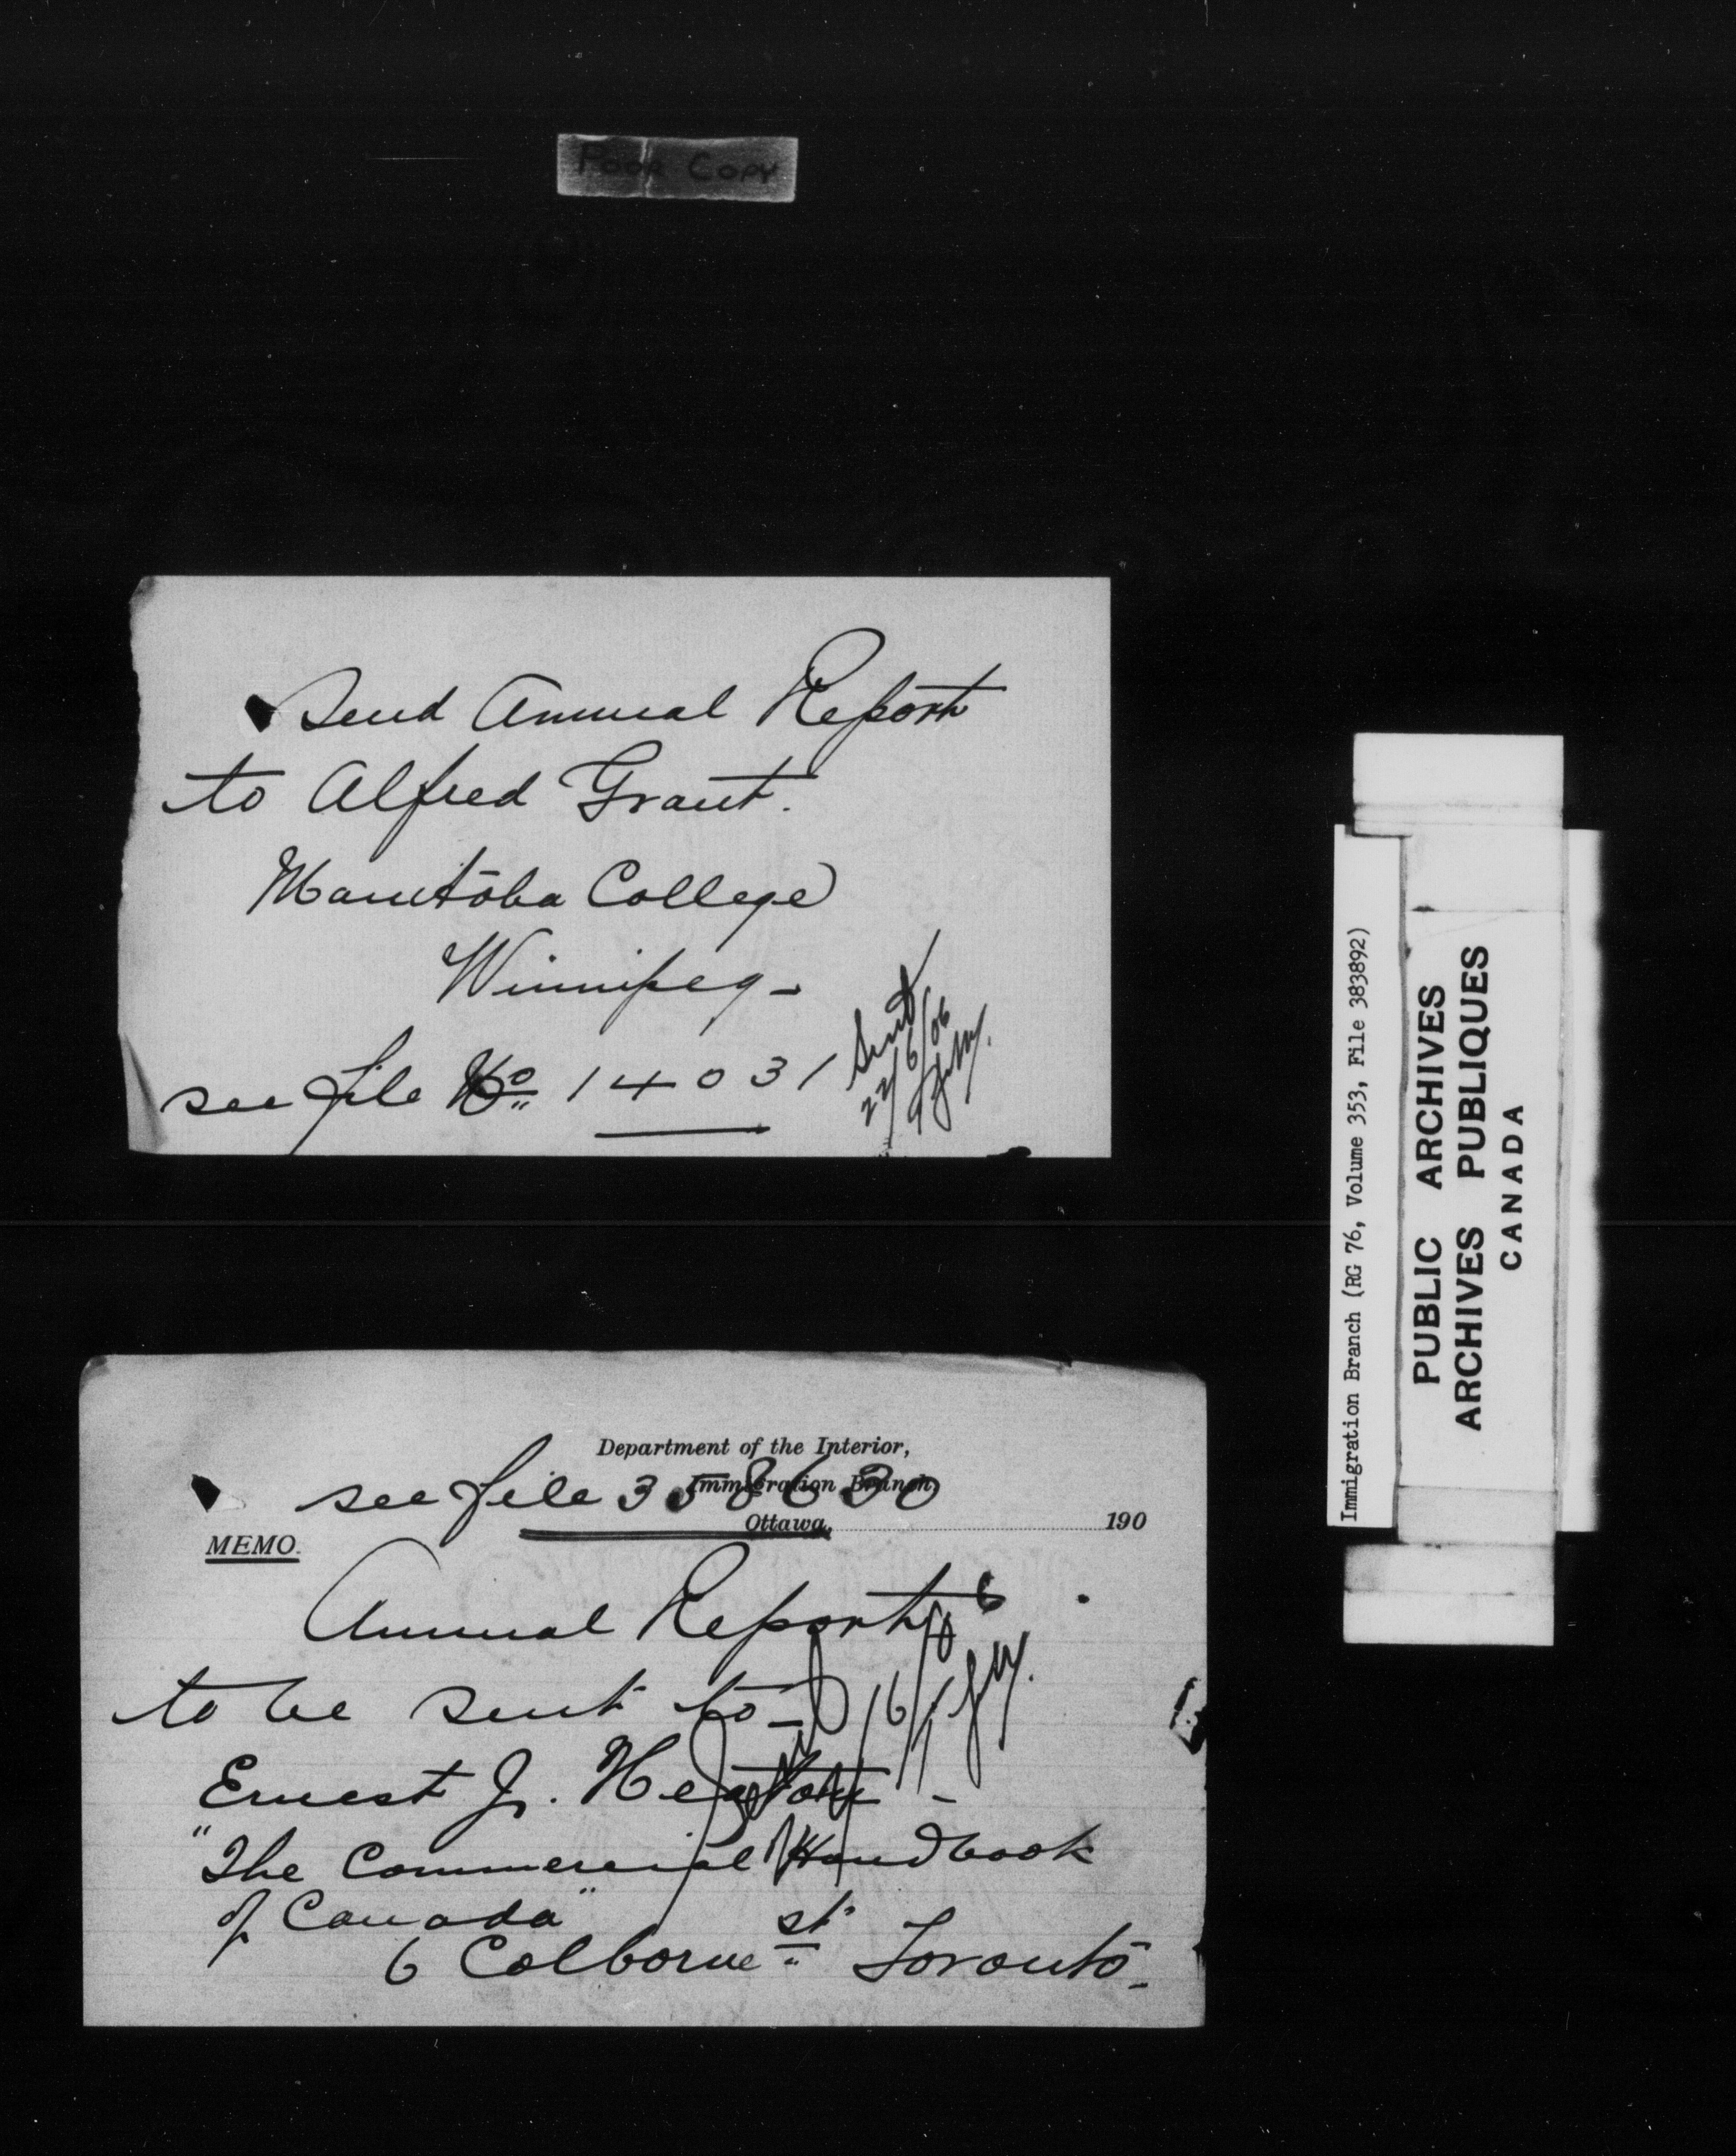 POOR COPY
Send Annual Report
to Alfred Grant.
Manitoba College
Winnipeg -
see file No 14031
Sent
22/6/06
Department of the Interior,
Immigration Branch,
see file 358630
Ottawa, 190
MEMO.
Annual Report
to be sent to -
Ernest J. Heaton -
"The Commercial Handbook
of Canada"
6 Colborne st Toronto -
16/
Immigration Branch (RG 76, Volume 353, File 383892)
PUBLIC ARCHIVES
ARCHIVES PUBLIQUES
CANADA